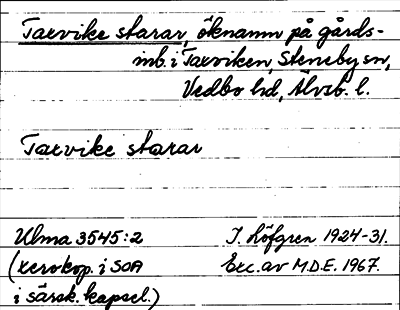 Tarvike starar, öknamn på gårds-
inb. i Tarviken, Steneby sn,
Vedbo hd, Älvsb. l.
Tarvike starar
Ulma 3545:2 J. Löfgren 1924-31.
(xerokop. i SOA Exc. av M.D.E. 1967.
i särsk. kapsel.)